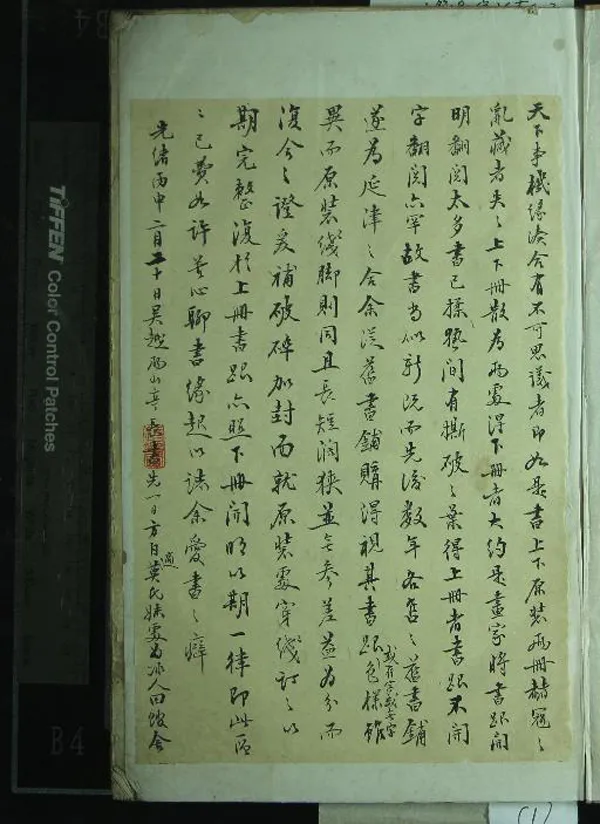 天下事機緣湊合有不可思議者即如是書上下原裝兩冊赭寇之
亂藏者失之上下冊散為兩處得下冊者大約是畫家時書跟開
明翻閱太多書已揉熟間有撕破之葉得上冊者書跟未開
字翻閱亦罕故書尚似新況而先後數年各售之舊書鋪
遂為延津之合余從舊書鋪購得視其書跟色樣雖
或有字或無字
異而原裝線腳則同且長短闊狹並無參差益為分而
復合之證爰補破碎加封面就原裝處穿線訂之以
期完整復於上冊書跟亦照下冊開明以期一律即此區
區已費如許苦心聊書緣起以誌余愛書之癖
光緒丙申二月二十日吳越
先一日方自莫氏妹處為冰人回
適
TIFFEN Color Control Patches
B4
(1)